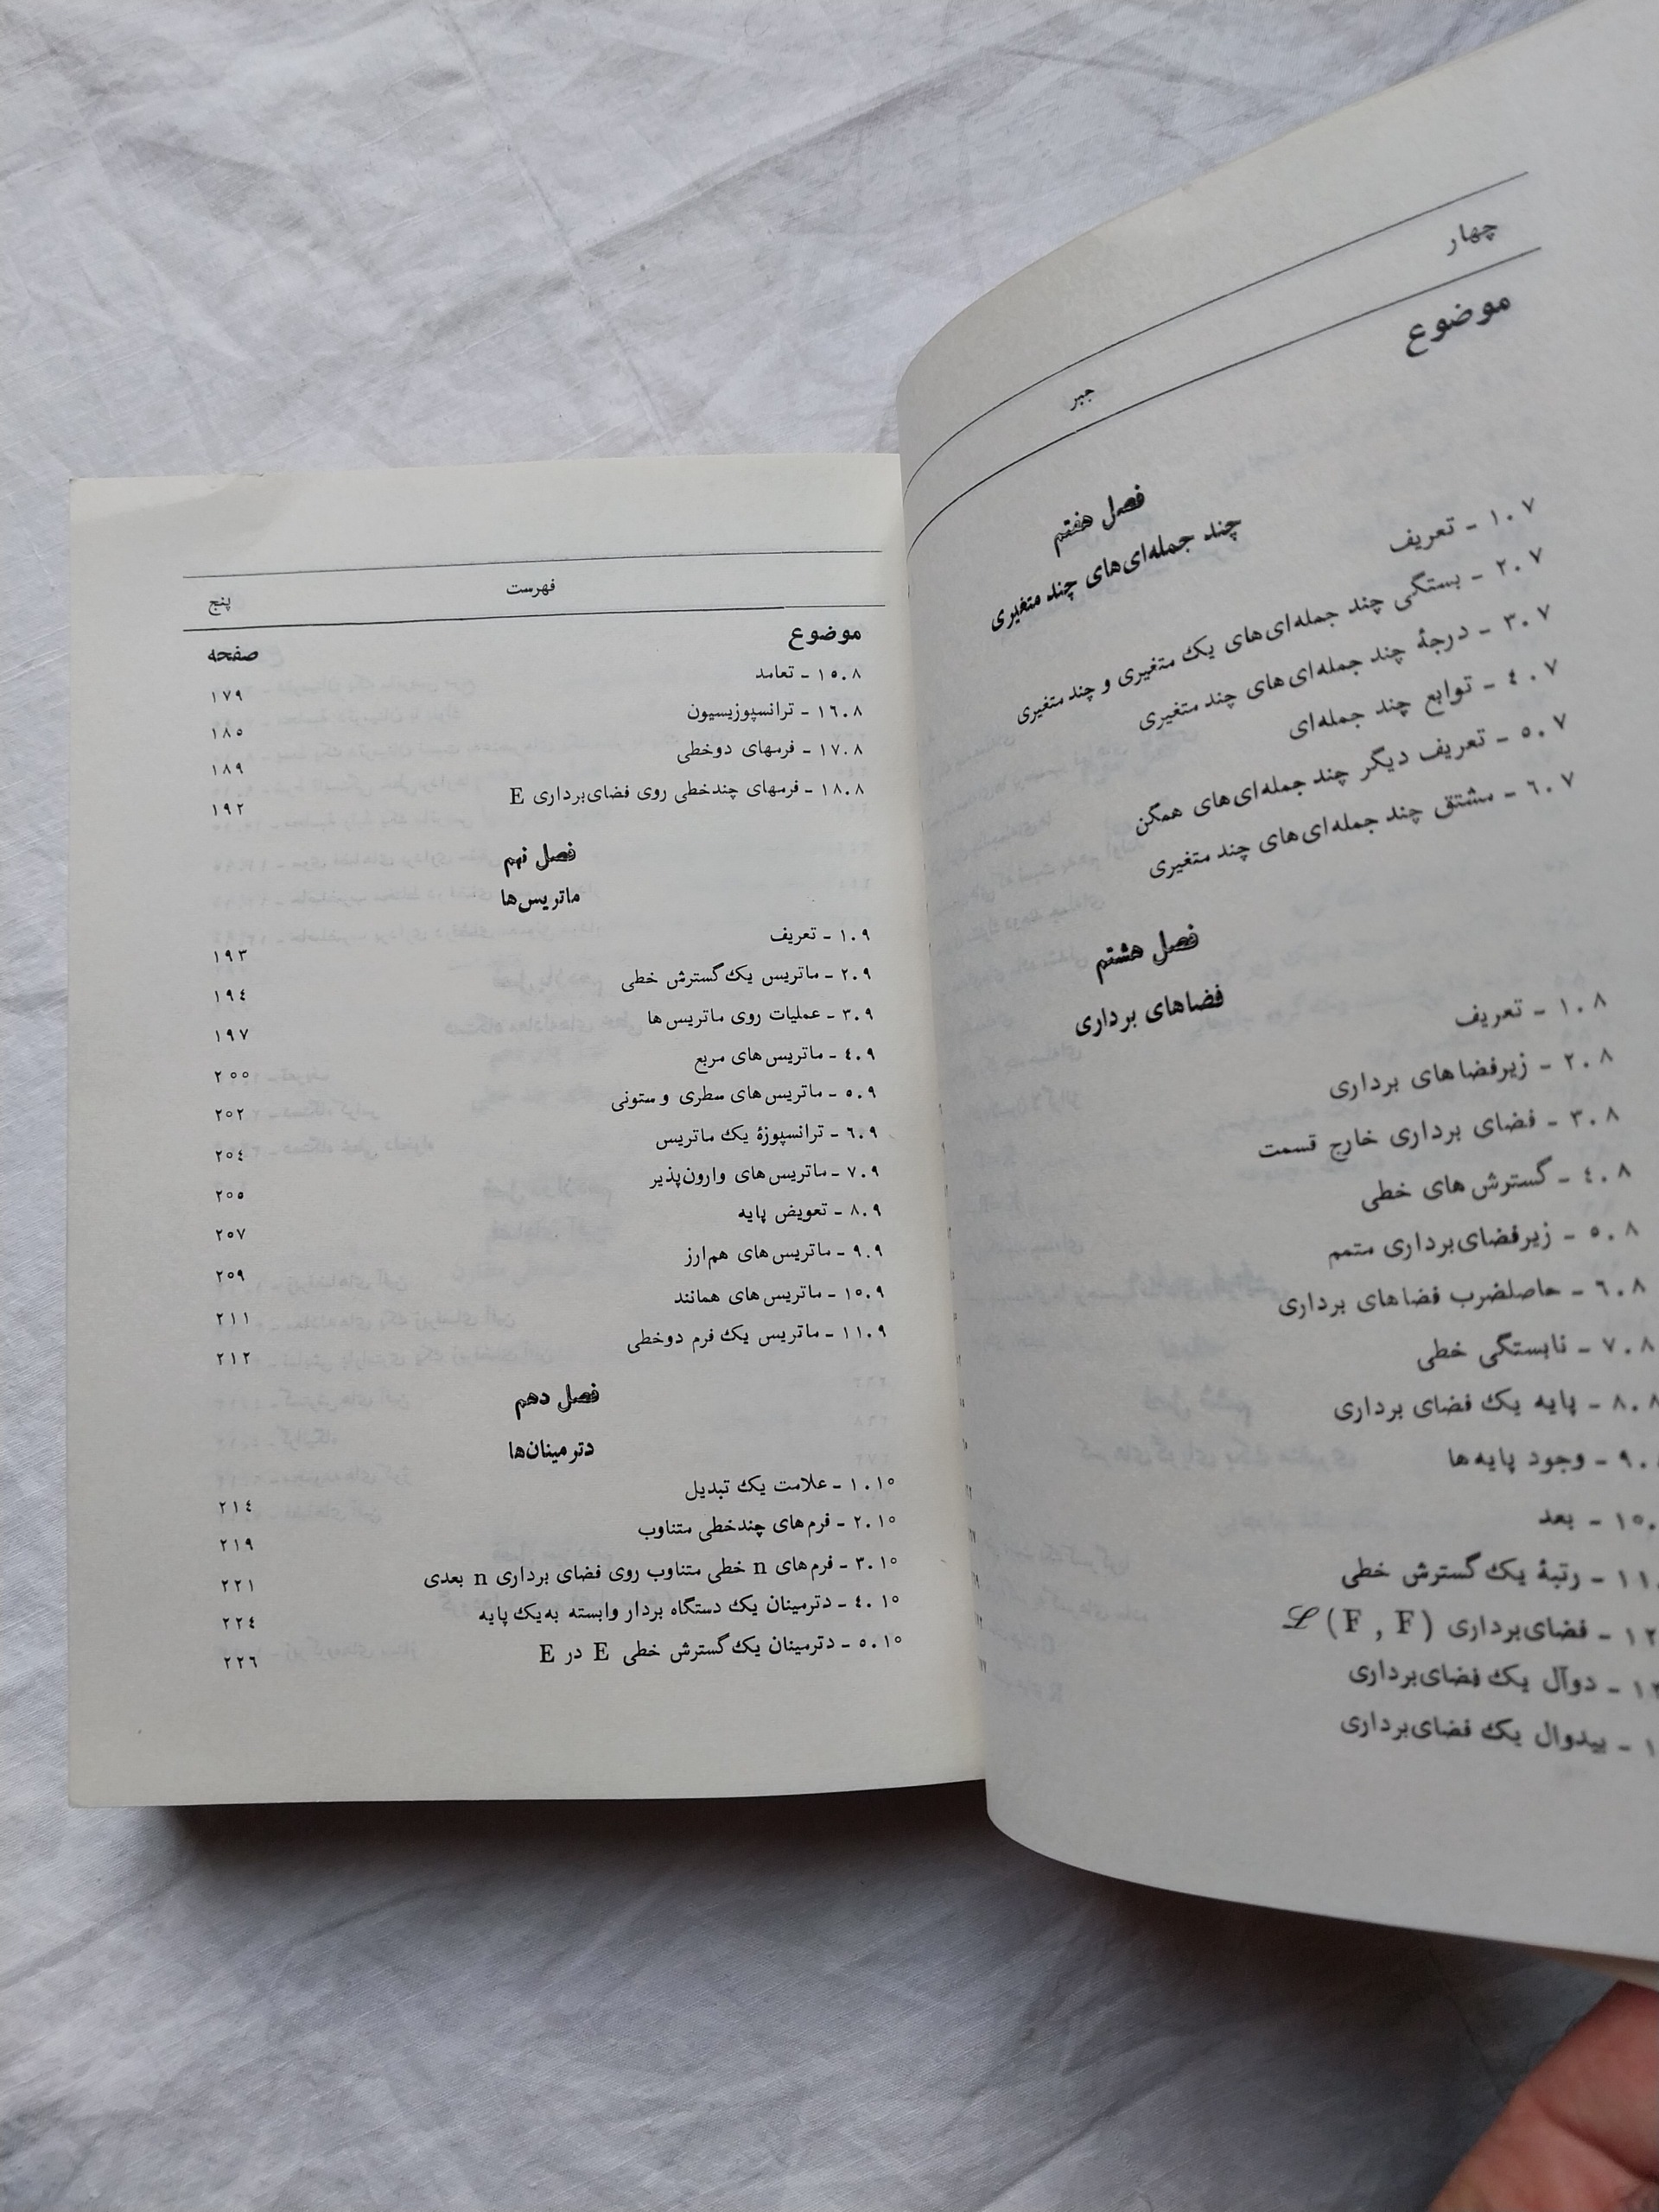 چهار
جبر
موضوع
فصل هفتم
چند جمله‌ای‌های چند متغیری
۱.۷ - تعریف
۲.۷ - بستگی چند جمله‌ای‌های یک متغیری و چند متغیری
۳.۷ - درجهٔ چند جمله‌ای‌های چند متغیری
۴.۷ - توابع چند جمله‌ای
۵.۷ - تعریف دیگر چند جمله‌ای‌های همگن
۶.۷ - مشتق چند جمله‌ای‌های چند متغیری
فصل هشتم
فضاهای برداری
۱.۸ - تعریف
۲.۸ - زیرفضاهای برداری
۳.۸ - فضای برداری خارج قسمت
۴.۸ - گسترش های خطی
۵.۸ - زیرفضای‌برداری متمم
۶.۸ - حاصلضرب فضاهای برداری
۷.۸ - نابستگی خطی
۸.۸ - پایه یک فضای برداری
۹. - وجود پایه‌ها
۱۰. - بعد
۱۱. - رتبهٔ یک گسترش خطی
۱۲ - فضای‌برداری ℒ (F , F)
۱۳ - دوآل یک فضای‌برداری
۱ - بیدوال یک فضای‌برداری
فهرست
پنج
موضوع
صفحه
۱۵.۸ - تعامد ۱۷۹
۱۶.۸ - ترانسپوزیسیون ۱۸۵
۱۷.۸ - فرمهای دوخطی ۱۸۹
۱۸.۸ - فرمهای چندخطی روی فضای‌برداری E ۱۹۲
فصل نهم
ماتریس‌ها
۱.۹ - تعریف ۱۹۳
۲.۹ - ماتریس یک گسترش خطی ۱۹۴
۳.۹ - عملیات روی ماتریس‌ها ۱۹۷
۴.۹ - ماتریس‌های مربع ۲۰۰
۵.۹ - ماتریس‌های سطری و ستونی ۲۰۲
۶.۹ - ترانسپوزهٔ یک ماتریس ۲۰۴
۷.۹ - ماتریس‌های وارون‌پذیر ۲۰۵
۸.۹ - تعویض پایه ۲۰۷
۹.۹ - ماتریس‌های هم‌ارز ۲۰۹
۱۰.۹ - ماتریس‌های همانند ۲۱۱
۱۱.۹ - ماتریس یک فرم دوخطی ۲۱۲
فصل دهم
دترمینان‌ها
۱.۱۰ - علامت یک تبدیل ۲۱۴
۲.۱۰ - فرم‌های چندخطی متناوب ۲۱۹
۳.۱۰ - فرم‌های n خطی متناوب روی فضای برداری n بعدی ۲۲۱
۴.۱۰ - دترمینان یک دستگاه بردار وابسته به یک پایه ۲۲۴
۵.۱۰ - دترمینان یک گسترش خطی E در E ۲۲۶